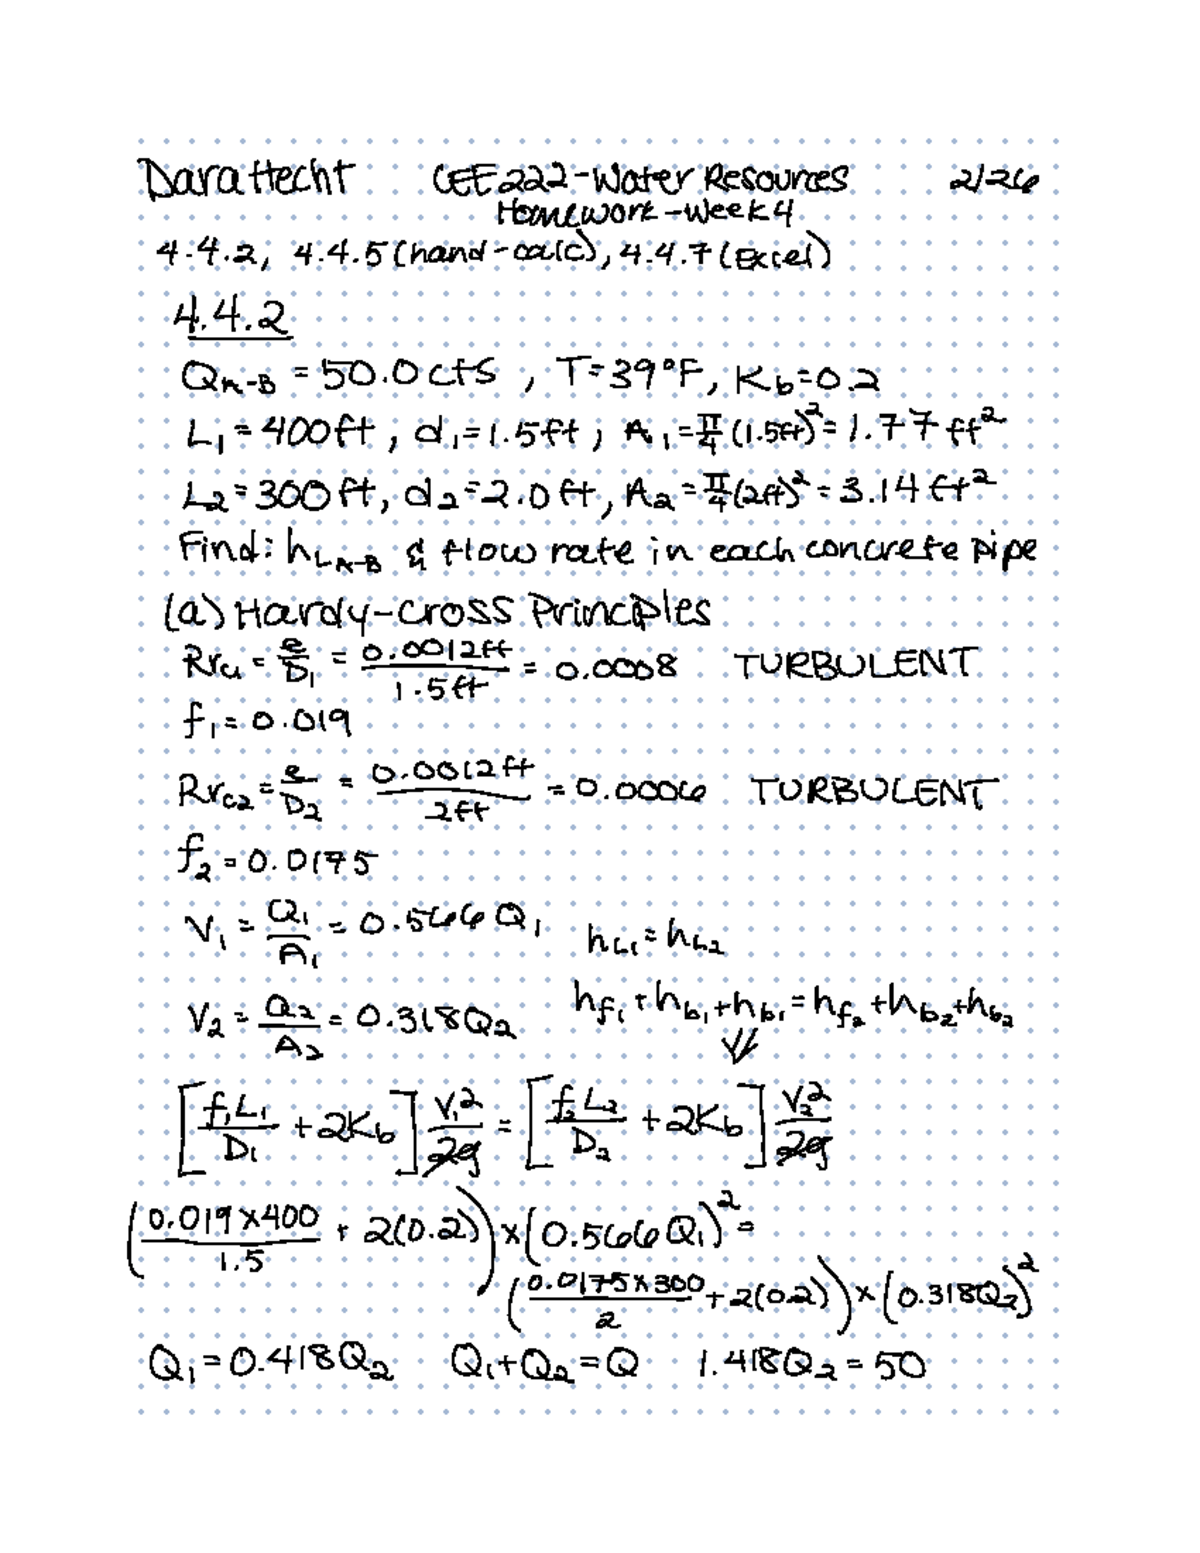 Dara Hecht CEE 222-Water Resources 2/26
Homework-Week 4
4.4.2, 4.4.5 (hand-calc), 4.4.7 (Excel)
4.4.2
Q_A-B = 50.0 cfs, T=39°F, K_b=0.2
L₁=400ft, d₁=1.5ft, A₁=π/4(1.5ft)²=1.77ft²
L₂=300ft, d₂=2.0ft, A₂=π/4(2ft)²=3.14ft²
Find: h_LA-B & flow rate in each concrete pipe
(a) Hardy-Cross Principles
Rrc₁ = e/D₁ = 0.0012ft/1.5ft = 0.0008 TURBULENT
f₁=0.019
Rrc₂ = e/D₂ = 0.0012ft/2ft = 0.0006 TURBULENT
f₂=0.0175
V₁ = Q₁/A₁ = 0.566Q₁ h_L1=h_L2
V₂ = Q₂/A₂ = 0.318Q₂ h_f₁+h_b₁+h_b₁=h_f₂+h_b₂+h_b₂
⇓
[f₁L₁/D₁ + 2K_b] V₁²/2g = [f₂L₂/D₂ + 2K_b] V₂²/2g
(0.019×400/1.5 + 2(0.2))×(0.566Q₁)²=
(0.0175×300/2 + 2(0.2))×(0.318Q₂)²
Q₁=0.418Q₂ Q₁+Q₂=Q 1.418Q₂=50